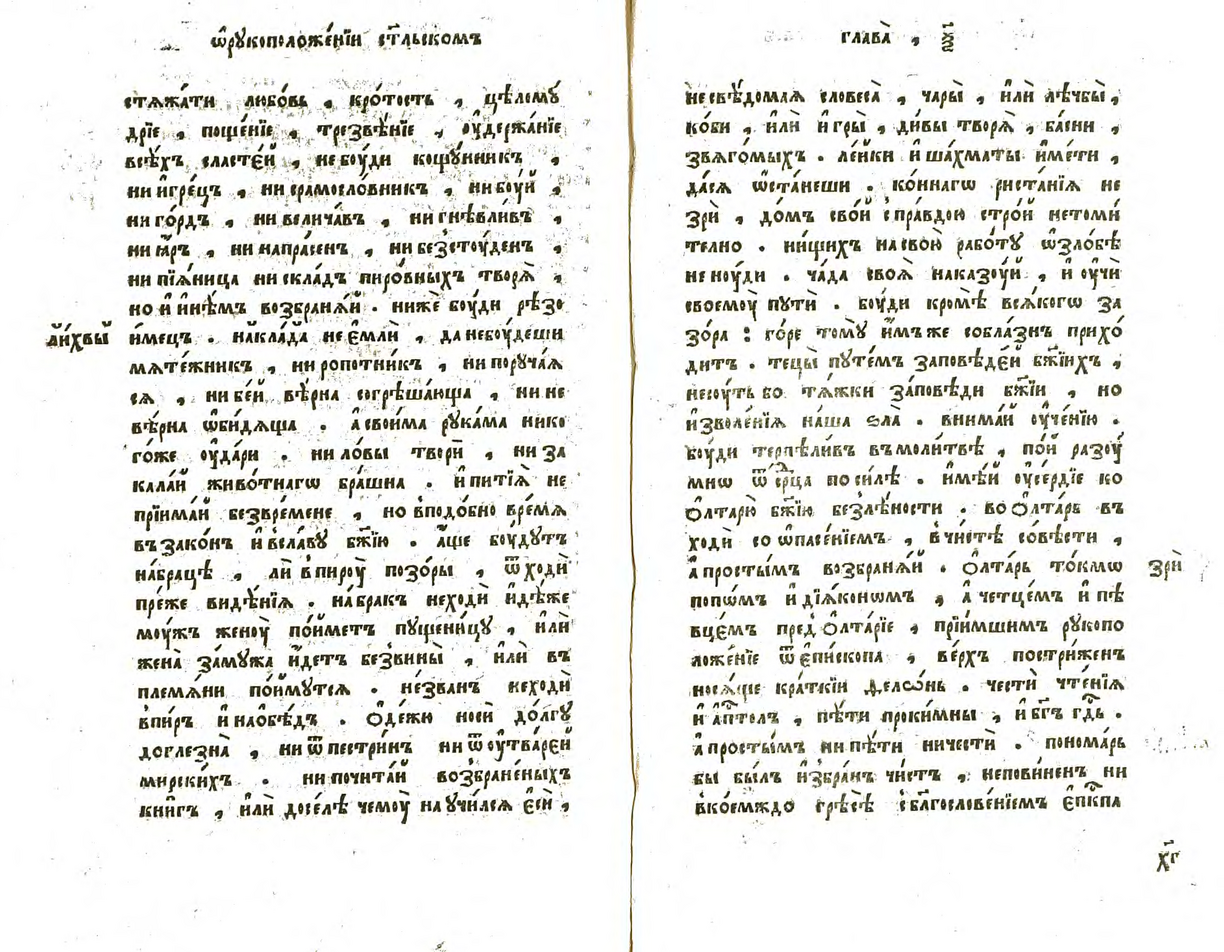 ѡ҆рꙋкоположе́нїи ст҃льскомъ
стѧжа́ти любо́вь , кро́тость , цѣ́ломꙋ
дрїе , поще́нїе , трезвѣ́нїе , оу҆держа́нїе
всѣ́хъ сласте́й , не бо́уди кощꙋ́нникъ ,
ни и҆гре́цъ , ни срамосло́вникъ , ни бо́уй ,
ни го́рдъ , ни велича́въ , ни гнѣ́вливъ ,
ни ꙗ҆́ръ , ни напра́сенъ , ни без̾сто́уденъ ,
ни пїѧ́ница ни скла́дъ пиро́вныхъ творѧ̀ ,
но и҆ и҆нѣ́мъ возбранѧ́й . нижѐ бо́уди рѣ́зо
а҆и́хвы́й
и҆́мецъ . накла́да не є҆́мли , да не бо́удеши
мѧте́жникъ , ни ро́потникъ , ни порꙋча́ѧ
сѧ , ни бе́й вѣ́рна согрѣша́юща , ни не
вѣ́рна ѡ҆би́дѧща . а҆ свои́ма рꙋка́ма нико
го́же оу҆да́ри . ни ло́вы творѝ , ни за
кала́й живо́тнагѡ бра́шна . и҆ питїѧ̀ не
прїима́й безвре́мене , но в̾подо́бно вре́мѧ
въ зако́нъ и҆ в̾сла́вꙋ бж҃їю . а҆́ще бо́удꙋтъ
на́браце̂ , лѝ в̾пироу̀ позо́ры , ѿходѝ
пре́же ви́дѣнїѧ . на́бракъ не ходѝ и҆дѣ́же
мо́ужъ женоу̀ по́йметъ пꙋщени́цꙋ , и҆лѝ
жена̀ за́мꙋжа и҆де́тъ безвины̀ , и҆лѝ въ
племѧ́ни по́ймꙋтсѧ . не́званъ не ходѝ
в̾пиръ и҆ на ѻ҆бѣ́дъ . Ѻ҆де́жю носѝ до́лгꙋ
доглезна̀ , ни ѿ пестри́нъ ни ѿ оу҆тва́рей
мирски́хъ . ни почита́й возбране́ныхъ
кни́гъ , и҆лѝ досе́лѣ чемоу̀ наꙋчи́лсѧ є҆сѝ ,
глава̀ ,
не свѣ́домаѧ словеса̀ , чары̀ , и҆лѝ лѣ́чбы̀ ,
ко́би , и҆лѝ и҆гры̀ , ди́вы творѧ̀ , ба́сни ,
звѧго́мыхъ . ле́йки и҆ ша́хматы и҆мѣ́ти ,
да́сѧ ѡ҆ста́неши . ко́ннагѡ риста́нїѧ не
зрѝ , до́мъ сво́й с̾пра́вдою стро́й нетоми́
телно . ни́щихъ на свою̀ рабо́тꙋ ѡ҆зло́бѣ
не но́уди . ча́да своѧ̀ наказо́уй , и҆ оу҆чѝ
своемоу̀ пꙋтѝ . бо́уди кромѣ̀ всѧ́когѡ за
зо́ра : го́ре томꙋ̀ и҆́мъже собла́знъ прихо́
дитъ . тецы̀ пꙋте́мъ за́повѣдей бж҃їихъ ,
несо́уть бо тѧ́жки за́повѣди бж҃їи , но
и҆зволе́нїѧ на́ша ѕла̀ . внима́й оу҆че́нїю .
бо́уди терпѣли́въ въ моли́твѣ , по́й разо́у
мнѡ ѿ ср҃ца по си́лѣ . и҆мѣ́й оу҆се́рдїе ко
Ѻ҆лтарю̀ бж҃їю безлѣ́ности . во Ѻ҆лта́рь въ
ходѝ со ѡ҆пасе́нїемъ , в̾чи́стѣ со́вѣсти ,
а҆ просты́мъ возбранѧ́й . Ѻ҆лта́рь то́кмѡ
зрѝ
попѡ́мъ и҆ дїѧ́конѡмъ , а҆ четце́мъ и҆ пѣ
вце́мъ пред̾ Ѻ҆лта́рїе , прїи́мшимъ рꙋкопо
ложе́нїе ѿ є҆пи́скопа , ве́рхъ постри́женъ
носѧ́ще кра́ткїи фело́нь . честѝ чте́нїѧ
и҆ а҆пⷭ҇толъ , пѣ́ти проки́мны , и҆ бг҃ъ гдⷭ҇ь .
а҆ просты́мъ ни пѣ́ти ни честѝ . понома́рь
бы бы́лъ и҆збра́нъ чи́стъ , непови́ненъ ни
в̾ко́емждо грѣ́сѣ с̾бл҃агослове́нїемъ є҆пⷭ҇кпа
х҃г